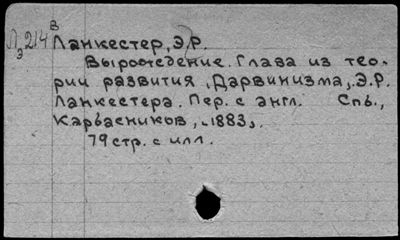 Л э 214 в
Ланкестер, Э.Р.
Вырождение. Глава из тео-
рии развития, Дарвинизма, Э.Р.
Ланкестера. Пер. с англ. Спь.,
Карбасников, „1883„.
79 стр. с илл.